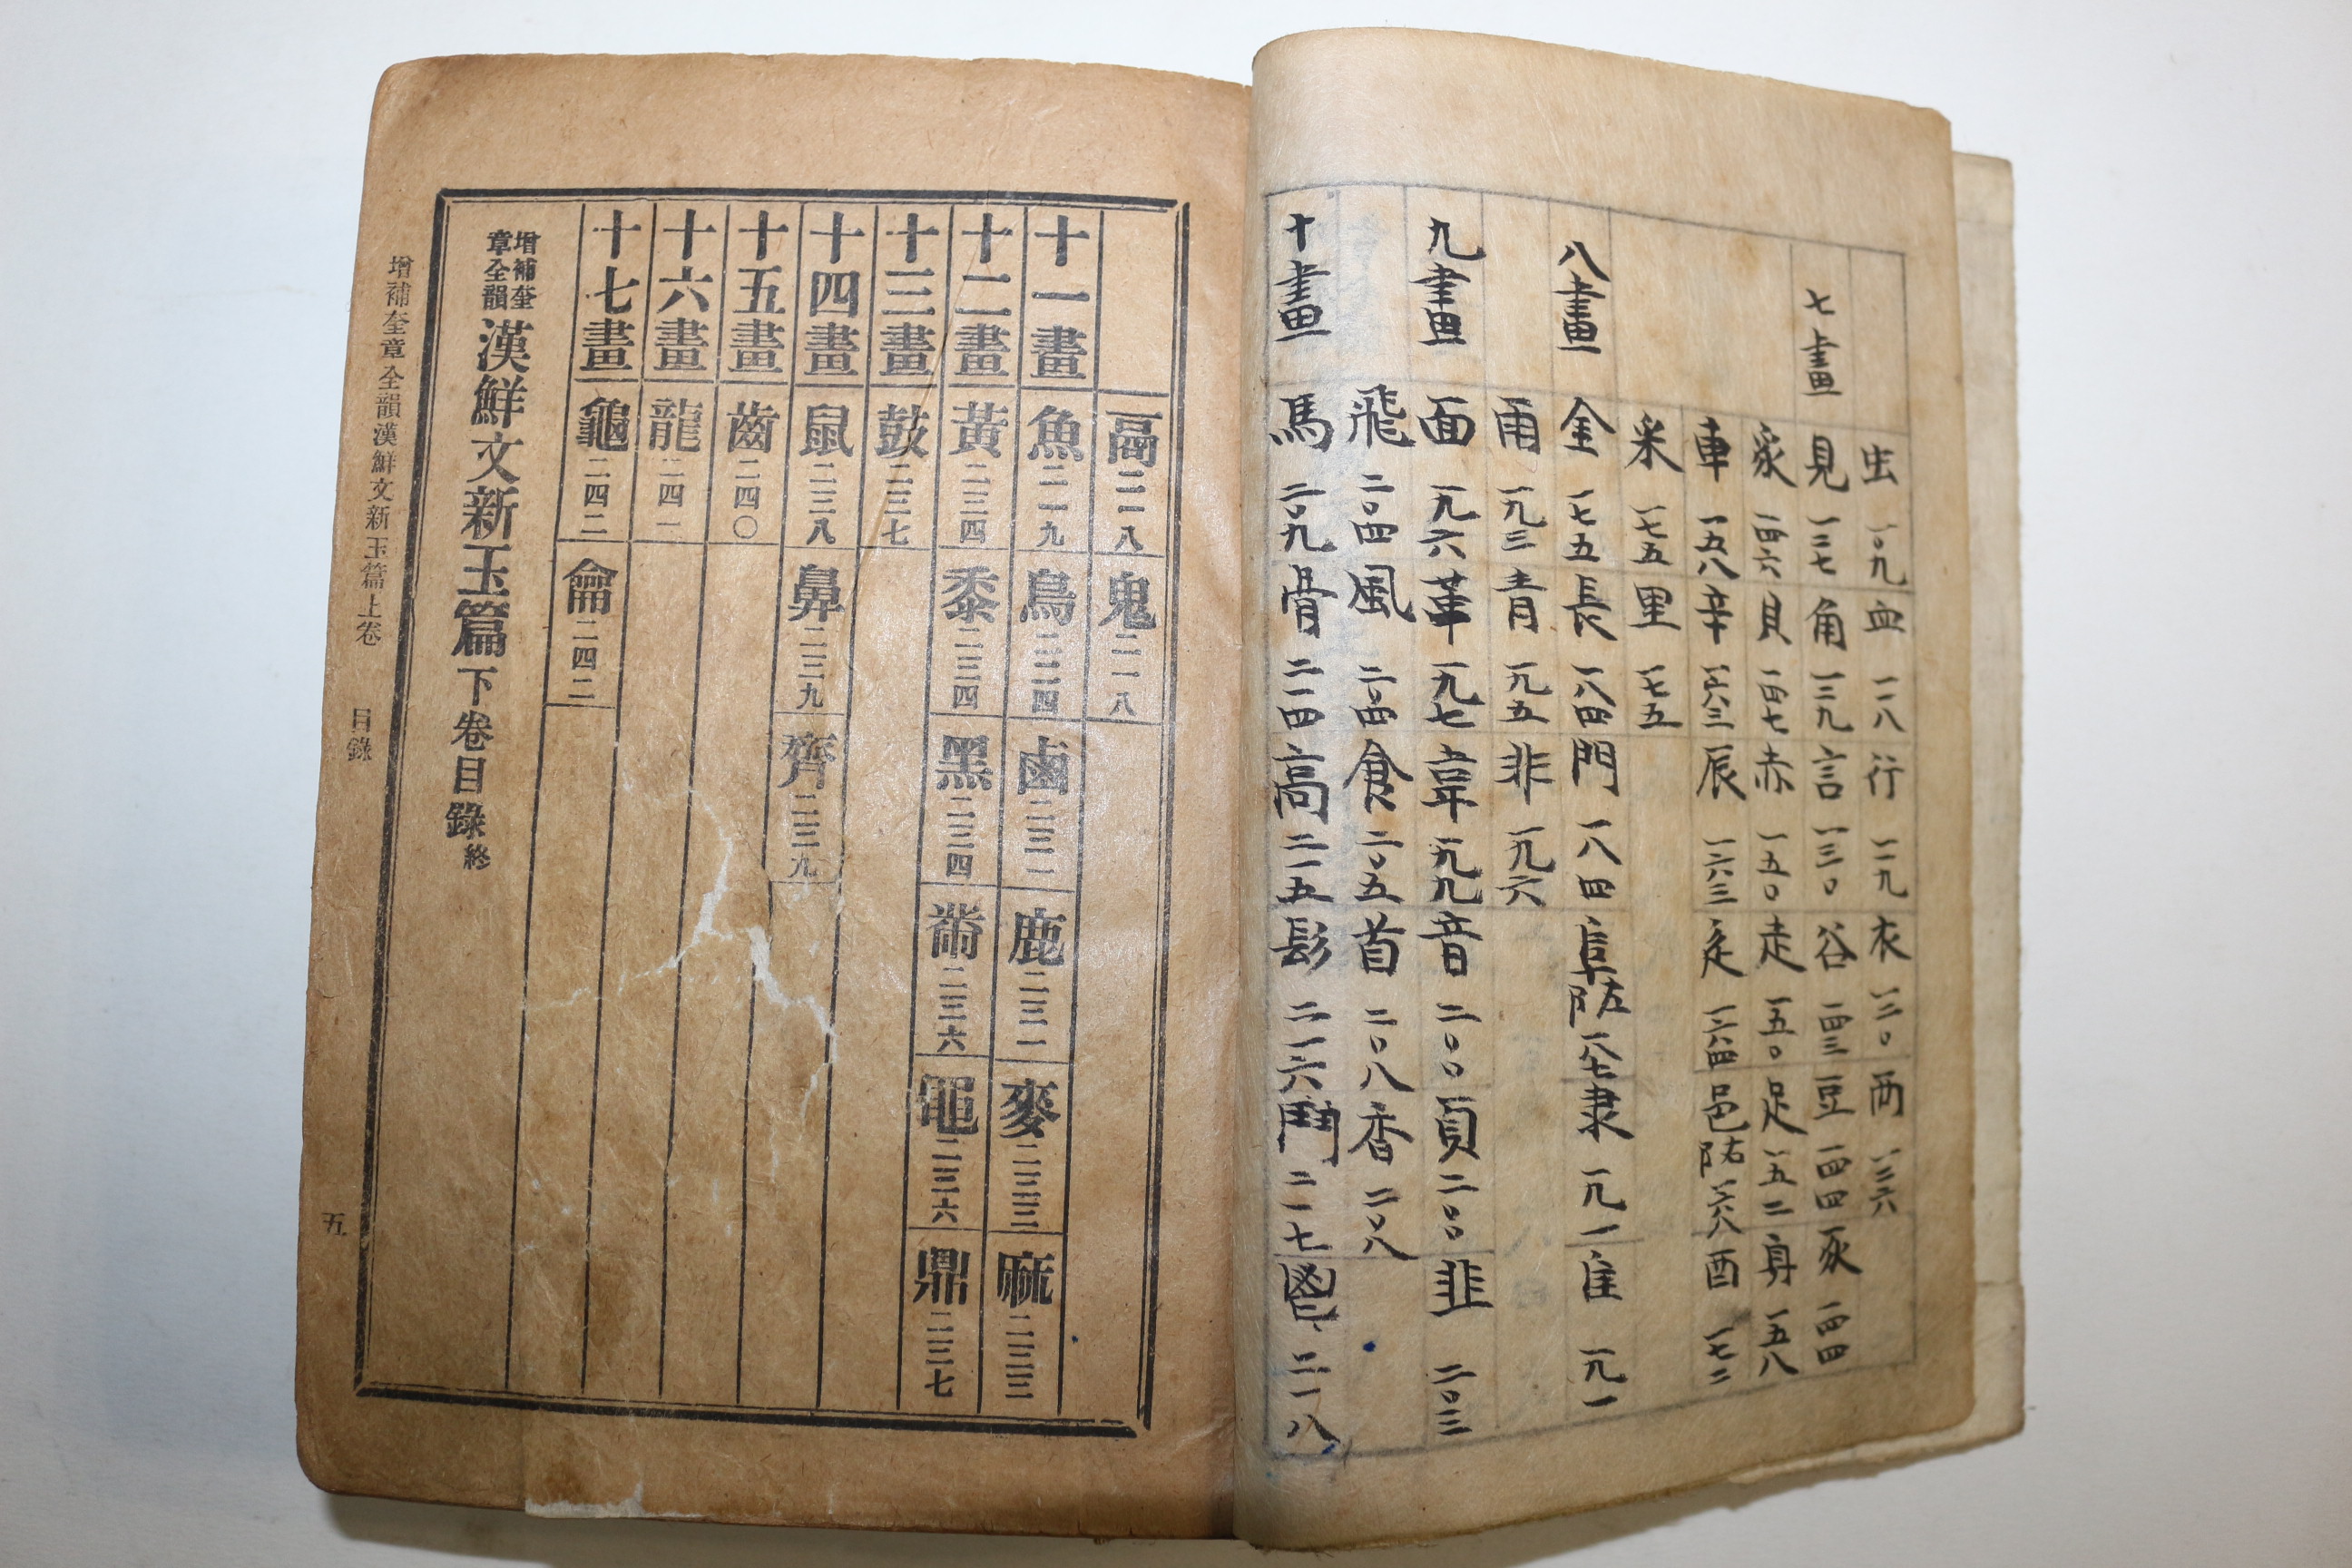 虫 一〇九 血 一一八 行 一一九 衣 一二〇 襾 一二六
七畫 見 一二七 角 一二九 言 一三〇 谷 一四三 豆 一四四 豕 一四四
豸 一四六 貝 一四七 赤 一五〇 走 一五〇 足 一五二 身 一五八
車 一五八 辛 一六三 辰 一六三 辵 一六四 邑 阝右 一六八 酉 一七二
釆 一七五 里 一七五
八畫 金 一七五 長 一八四 門 一八四 阜 阝左 一八七 隶 一九一 隹 一九一
雨 一九三 青 一九五 非 一九六
九畫 面 一九六 革 一九七 韋 一九九 音 二〇〇 頁 二〇〇 韭 二〇三
飛 二〇四 風 二〇四 食 二〇五 首 二〇八 香 二〇八
十畫 馬 二〇九 骨 二一四 高 二一五 髟 二一六 鬥 二一七 鬯 二一八
鬲 二一八 鬼 二一八
十一畫 魚 二一九 鳥 二二四 鹵 二三一 鹿 二三一 麥 二三三 麻 二三三
十二畫 黃 二三四 黍 二三四 黑 二三四 黹 二三六 黽 二三六 鼎 二三七
十三畫 鼓 二三七
十四畫 鼠 二三八 鼻 二三九 齊 二三九
十五畫 齒 二四〇
十六畫 龍 二四一
十七畫 龜 二四二 龠 二四二
增補奎章全韻 漢鮮文新玉篇 下卷目錄 終
增補奎章全韻漢鮮文新玉篇上卷 目錄 五